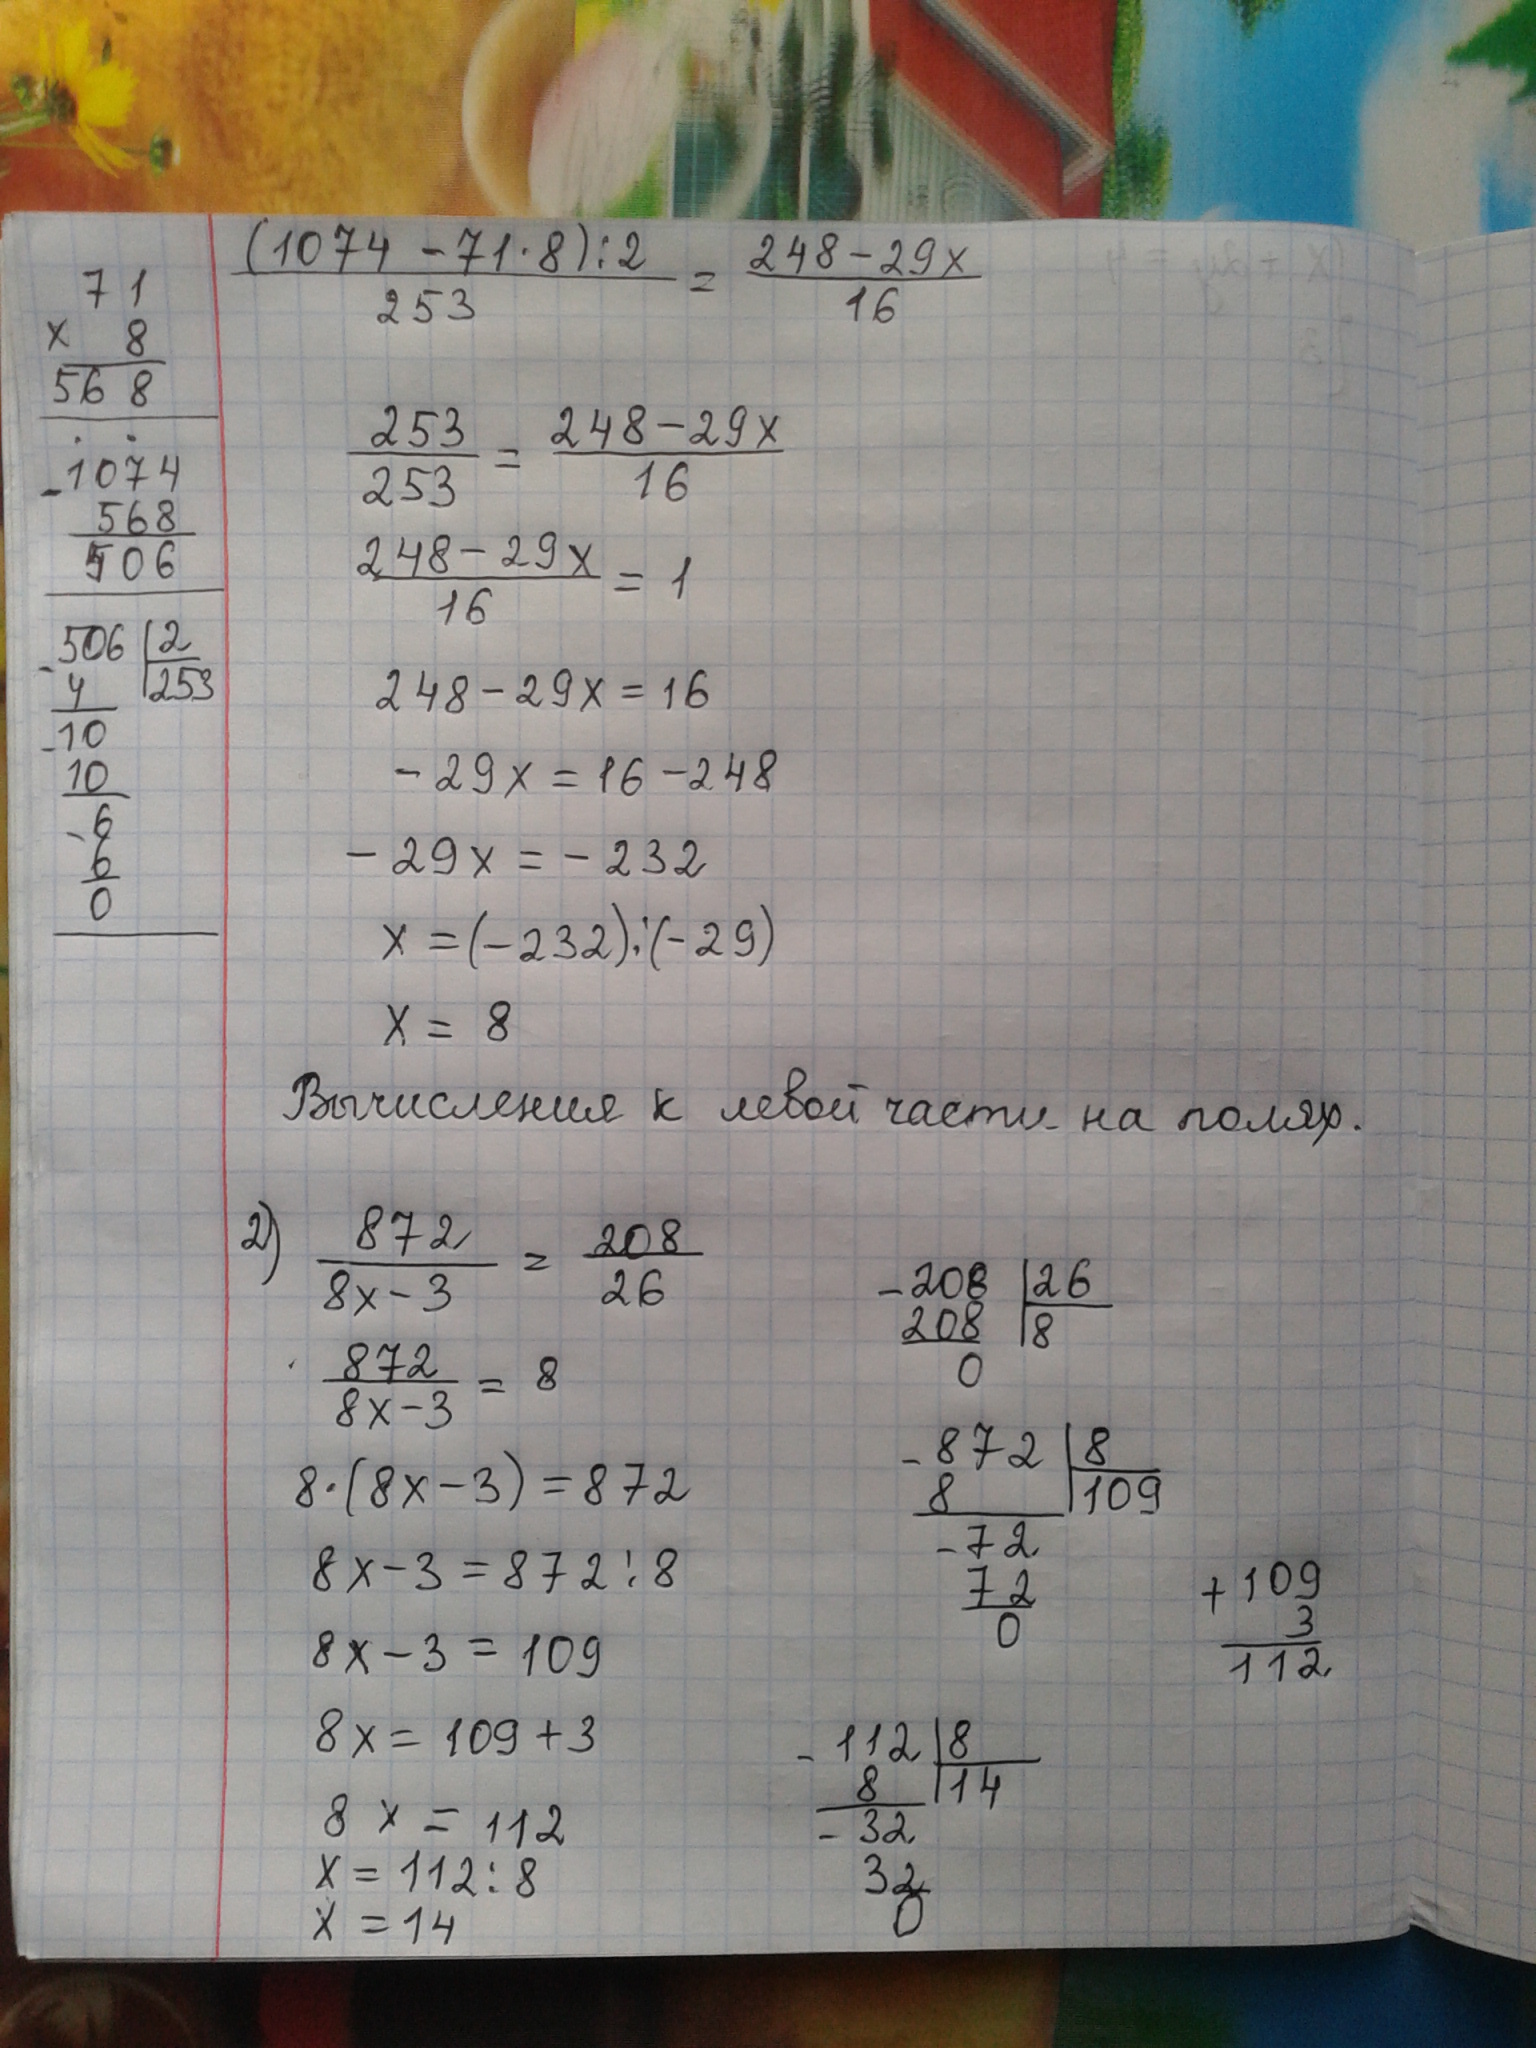 71
× 8
568
-1074
568
506
-506 | 2
4 | 253
-10
10
-6
6
0
(1074 - 71·8):2 / 253 = 248 - 29x / 16
253 / 253 = 248 - 29x / 16
248 - 29x / 16 = 1
248 - 29x = 16
- 29x = 16 - 248
- 29x = - 232
x = (-232):(-29)
x = 8
Вычисления к левой части на полях.
2) 872 / 8x - 3 = 208 / 26
872 / 8x - 3 = 8
8·(8x - 3) = 872
8x - 3 = 872:8
8x - 3 = 109
8x = 109 + 3
8x = 112
x = 112:8
x = 14
-208 | 26
208 | 8
0
-872 | 8
8 | 109
-72
72
0
+109
3
112
-112 | 8
8 | 14
-32
32
0